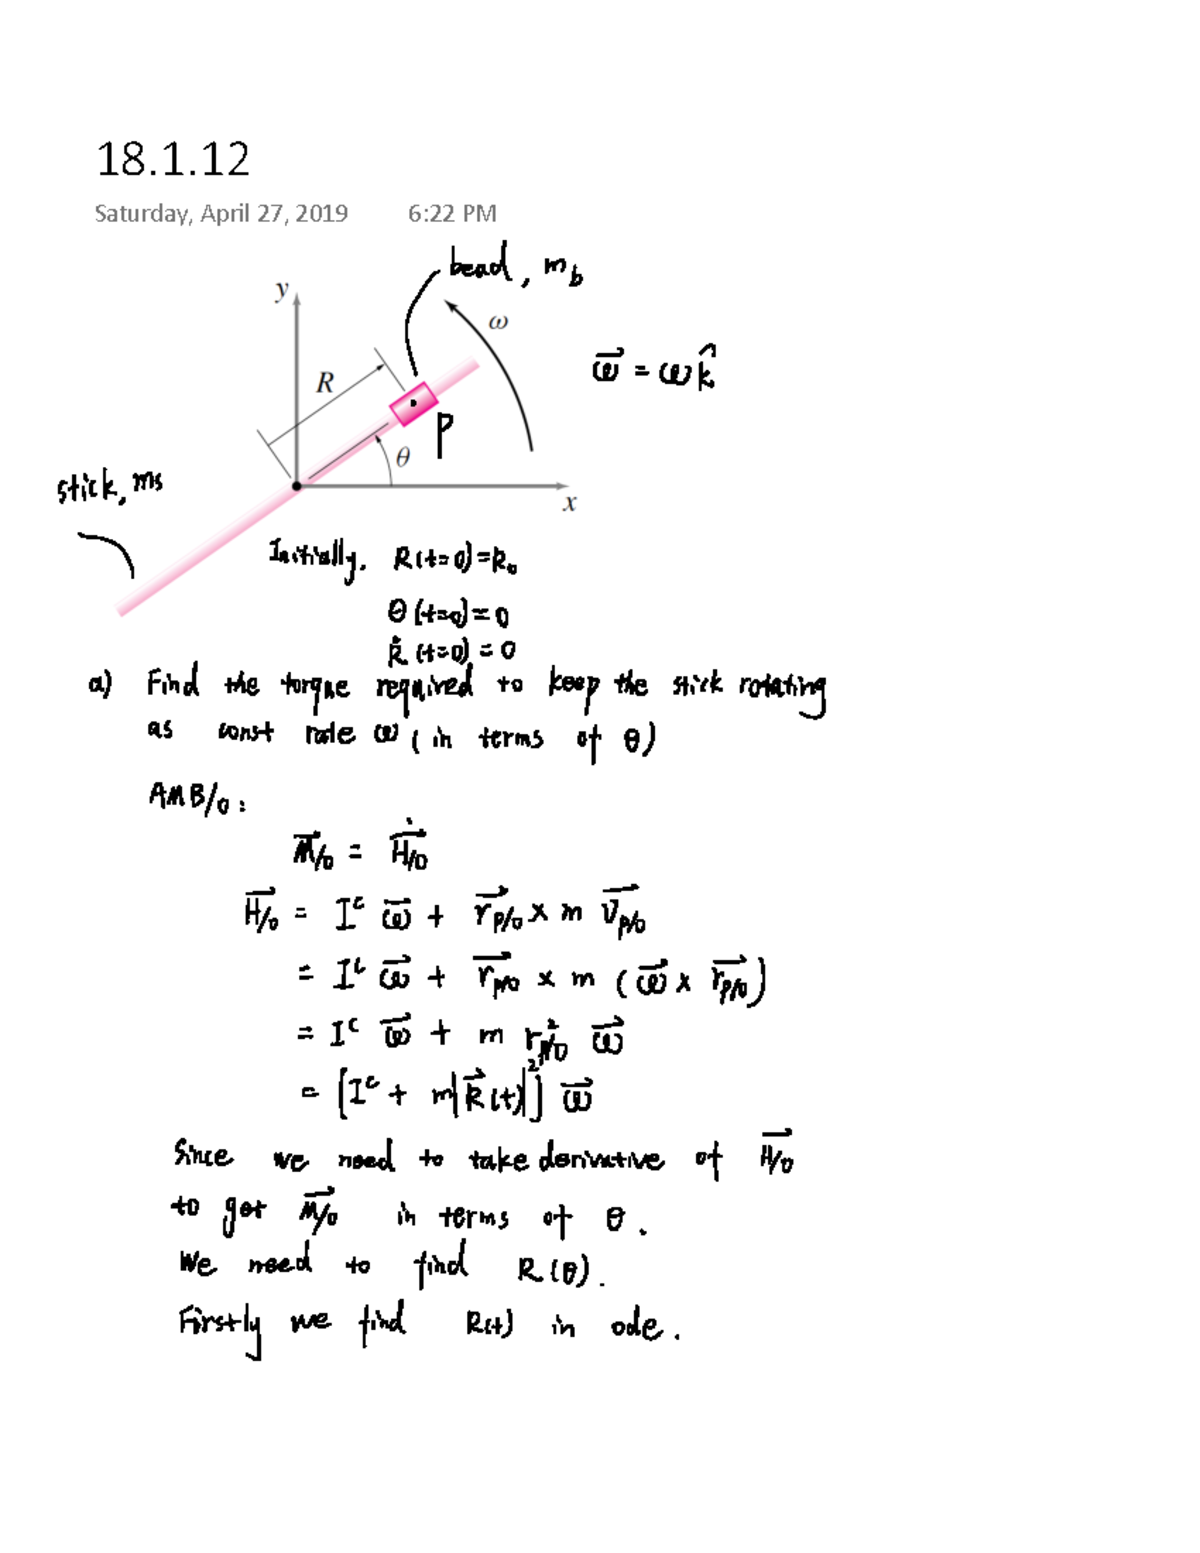 18.1.12
Saturday, April 27, 2019 6:22 PM
bead, m_b
y
ω
R
$\vec{ω} = ω\hat{k}$
P
θ
stick, ms
x
Initially. R(t=0)=R₀
θ(t=0)=0
$\dot{R}$(t=0) = 0
a) Find the torque required to keep the stick rotating
as const rate ω (in terms of θ)
AMB/o:
$\vec{M}_{/o} = \dot{\vec{H}}_{/o}$
$\vec{H}_{/o} = I^c \vec{ω} + \vec{r}_{P/o} × m \vec{v}_{P/o}$
$= I^c \vec{ω} + \vec{r}_{P/o} × m (\vec{ω} × \vec{r}_{P/o})$
$= I^c \vec{ω} + m r_{P/o}^2 \vec{ω}$
$= [I^c + m|\vec{R}(t)|^2] \vec{ω}$
Since we need to take derivative of $\vec{H}_{/o}$
to get $\vec{M}_{/o}$ in terms of θ.
We need to find R(θ).
Firstly we find R(t) in ode.